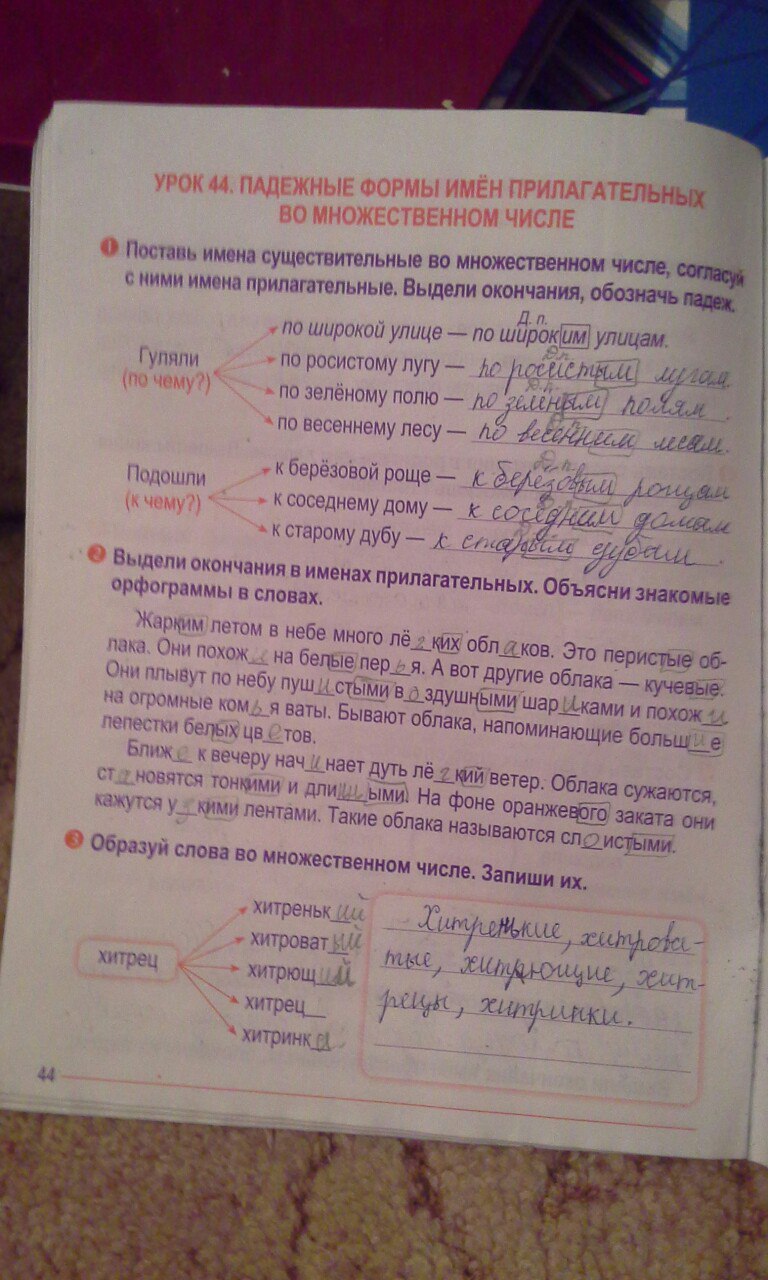 УРОК 44. ПАДЕЖНЫЕ ФОРМЫ ИМЁН ПРИЛАГАТЕЛЬНЫХ
ВО МНОЖЕСТВЕННОМ ЧИСЛЕ
1 Поставь имена существительные во множественном числе, согласуй
с ними имена прилагательные. Выдели окончания, обозначь падеж.
Д. п.
по широкой улице — по широким улицам.
Гуляли
(по чему?)
Д.п.
по росистому лугу — по росистым лугам
Д.п.
по зелёному полю — по зелёным полям.
по весеннему лесу — по весенним лесам.
Подошли
(к чему?)
Д.п.
к берёзовой роще — к берёзовым рощам
к соседнему дому — к соседним домам
к старому дубу — к старым дубам.
2 Выдели окончания в именах прилагательных. Объясни знакомые
орфограммы в словах.
Жарким летом в небе много лёгких облаков. Это перистые об-
лака. Они похожи на белые перья. А вот другие облака — кучевые.
Они плывут по небу пушистыми воздушными шариками и похожи
на огромные комья ваты. Бывают облака, напоминающие большие
лепестки белых цветов.
Ближе к вечеру начинает дуть лёгкий ветер. Облака сужаются,
становятся тонкими и длишыми. На фоне оранжевого заката они
кажутся узкими лентами. Такие облака называются слоистыми.
3 Образуй слова во множественном числе. Запиши их.
хитрец
хитренький
хитроватый
хитрющий
хитрец_
хитринка
Хитренькие, хитрова-
тые, хитрющие, хит-
рецы, хитринки.
44